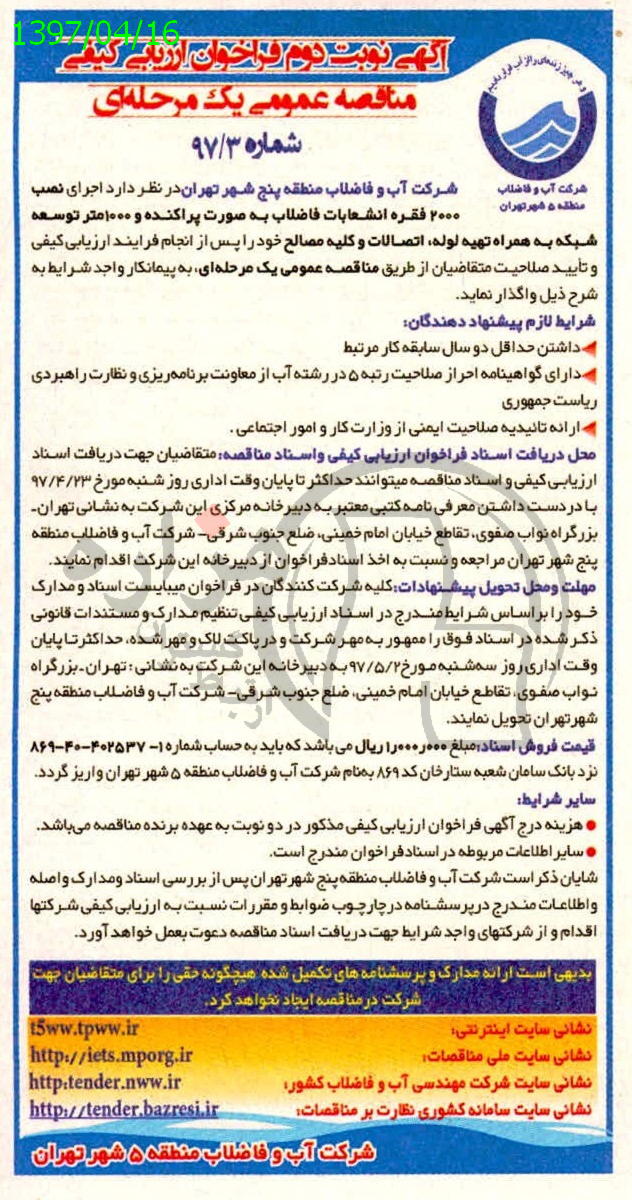 1397/04/16
آگهی نوبت دوم فراخوان ارزیابی کیفی
مناقصه عمومی یک مرحله‌ای
شماره ۹۷/۳
و من چیز زنده‌ای را از آب قرار دادیم
شرکت آب و فاضلاب
منطقه ۵ شهر تهران
شرکت آب و فاضلاب منطقه پنج شهر تهران در نظر دارد اجرای نصب
۲۰۰۰ فقره انشعابات فاضلاب به صورت پراکنده و ۱۰۰۰متر توسعه
شبکه به همراه تهیه لوله، اتصالات و کلیه مصالح خود را پس از انجام فرایند ارزیابی کیفی
و تأیید صلاحیت متقاضیان از طریق مناقصه عمومی یک مرحله‌ای، به پیمانکار واجد شرایط به
شرح ذیل واگذار نماید.
شرایط لازم پیشنهاد دهندگان:
داشتن حداقل دو سال سابقه کار مرتبط
دارای گواهینامه احراز صلاحیت رتبه ۵ در رشته آب از معاونت برنامه‌ریزی و نظارت راهبردی
ریاست جمهوری
ارائه تائیدیه صلاحیت ایمنی از وزارت کار و امور اجتماعی .
محل دریافت اسناد فراخوان ارزیابی کیفی واسناد مناقصه: متقاضیان جهت دریافت اسناد
ارزیابی کیفی و اسناد مناقصه میتوانند حداکثر تا پایان وقت اداری روز شنبه مورخ ۹۷/۴/۲۳
با در دست داشتن معرفی نامه کتبی معتبر به دبیرخانه مرکزی این شرکت به نشانی تهران-
بزرگراه نواب صفوی، تقاطع خیابان امام خمینی، ضلع جنوب شرقی- شرکت آب و فاضلاب منطقه
پنج شهر تهران مراجعه و نسبت به اخذ اسنادفراخوان از دبیرخانه این شرکت اقدام نمایند.
مهلت ومحل تحویل پیشنهادات: کلیه شرکت کنندگان در فراخوان میبایست اسناد و مدارک
خود را براساس شرایط مندرج در اسناد ارزیابی کیفی تنظیم مدارک و مستندات قانونی
ذکر شده در اسناد فوق را ممهور به مهر شرکت و در پاکت لاک و مهر شده، حداکثر تا پایان
وقت اداری روز سه‌شنبه مورخ ۹۷/۵/۲ به دبیرخانه این شرکت به نشانی : تهران - بزرگراه
نواب صفوی، تقاطع خیابان امام خمینی، ضلع جنوب شرقی- شرکت آب و فاضلاب منطقه پنج
شهر تهران تحویل نمایند.
قیمت فروش اسناد: مبلغ ۱٫۰۰۰٫۰۰۰ ریال می باشد که باید به حساب شماره ۱- ۴۰۲۵۳۷-۴۰-۸۶۹
نزد بانک سامان شعبه ستارخان کد ۸۶۹ به‌نام شرکت آب و فاضلاب منطقه ۵ شهر تهران واریز گردد.
سایر شرایط:
● هزینه درج آگهی فراخوان ارزیابی کیفی مذکور در دو نوبت به عهده برنده مناقصه می‌باشد.
● سایر اطلاعات مربوطه در اسناد فراخوان مندرج است.
شایان ذکر است شرکت آب و فاضلاب منطقه پنج شهر تهران پس از بررسی اسناد ومدارک واصله
و اطلاعات مندرج در پرسشنامه در چارچوب ضوابط و مقررات نسبت به ارزیابی کیفی شرکتها
اقدام و از شرکتهای واجد شرایط جهت دریافت اسناد مناقصه دعوت بعمل خواهد آورد.
بدیهی است ارائه مدارک و پرسشنامه های تکمیل شده هیچگونه حقی را برای متقاضیان جهت
شرکت در مناقصه ایجاد نخواهد کرد.
نشانی سایت اینترنتی: t5ww.tpww.ir
نشانی سایت ملی مناقصات: http://iets.mporg.ir
نشانی سایت شرکت مهندسی آب و فاضلاب کشور: http:tender.nww.ir
نشانی سایت سامانه کشوری نظارت بر مناقصات: http://tender.bazresi.ir
شرکت آب و فاضلاب منطقه ۵ شهر تهران